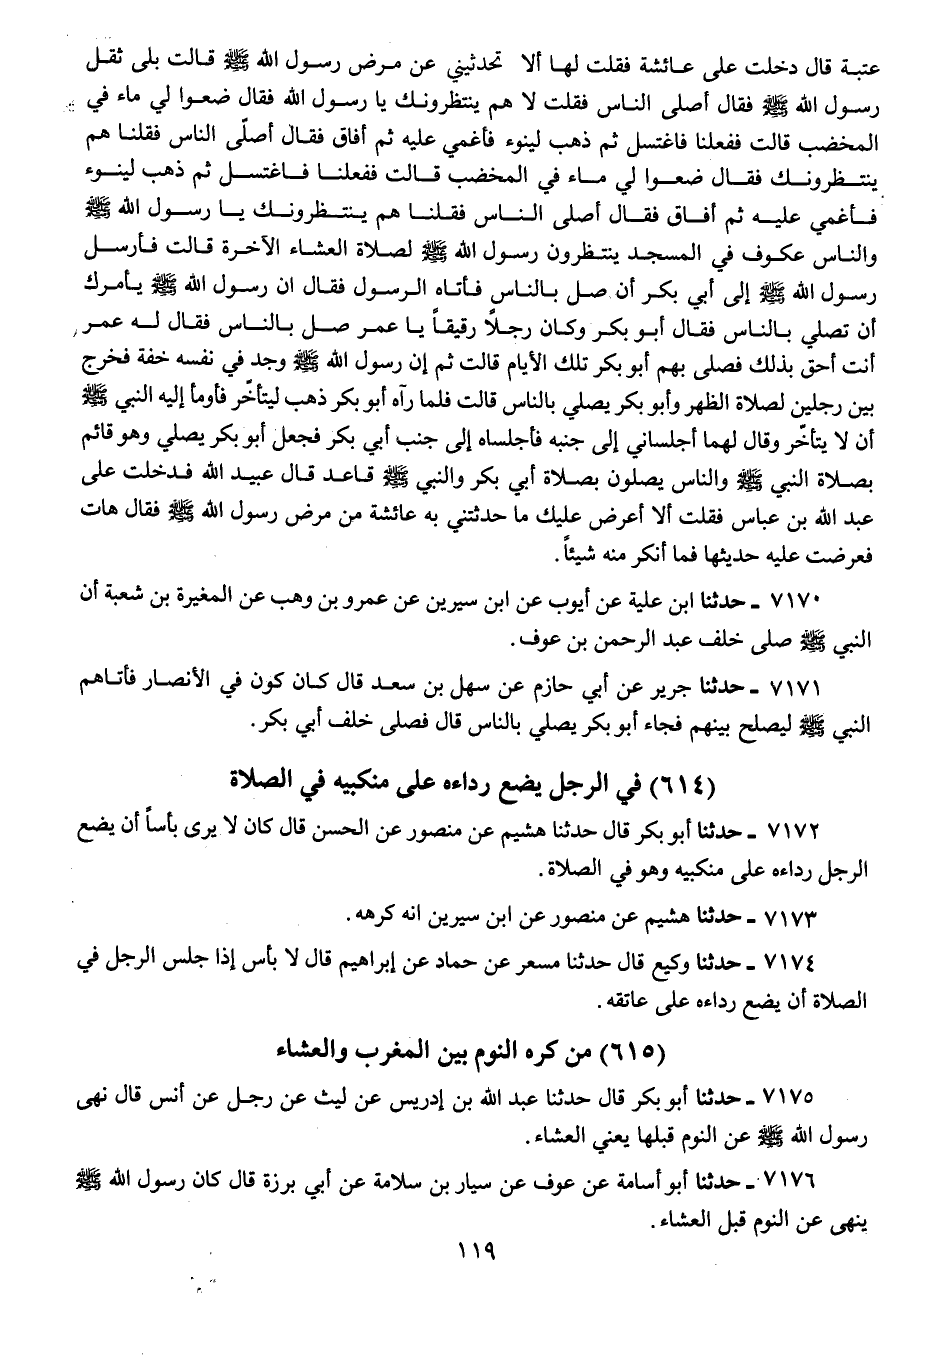 عتبة قال دخلت على عائشة فقلت لها ألا تحدثيني عن مرض رسول الله ﷺ قالت بلى ثقل
رسول الله ﷺ فقال أصلى الناس فقلت لا هم ينتظرونك يا رسول الله فقال ضعوا لي ماء في
المخضب قالت ففعلنا فاغتسل ثم ذهب لينوء فأغمي عليه ثم أفاق فقال أصلّى الناس فقلنا هم
ينتظرونك فقال ضعوا لي ماء في المخضب قالت ففعلنا فاغتسل ثم ذهب لينوء
فأغمي عليه ثم أفاق فقال أصلى الناس فقلنا هم ينتظرونك يا رسول الله ﷺ
والناس عكوف في المسجد ينتظرون رسول الله ﷺ لصلاة العشاء الآخرة قالت فأرسل
رسول الله ﷺ إلى أبي بكر أن صل بالناس فأتاه الرسول فقال ان رسول الله ﷺ يأمرك
أن تصلي بالناس فقال أبو بكر وكان رجلاً رقيقاً يا عمر صل بالناس فقال له عمر
أنت أحق بذلك فصلى بهم أبو بكر تلك الأيام قالت ثم إن رسول الله ﷺ وجد في نفسه خفة فخرج
بين رجلين لصلاة الظهر وأبو بكر يصلي بالناس قالت فلما رآه أبو بكر ذهب ليتأخّر فأومأ إليه النبي ﷺ
أن لا يتأخّر وقال لهما أجلساني إلى جنبه فأجلساه إلى جنب أبي بكر فجعل أبو بكر يصلي وهو قائم
بصلاة النبي ﷺ والناس يصلون بصلاة أبي بكر والنبي ﷺ قاعد قال عبيد الله فدخلت على
عبد الله بن عباس فقلت ألا أعرض عليك ما حدثتني به عائشة من مرض رسول الله ﷺ فقال هات
فعرضت عليه حديثها فما أنكر منه شيئاً.
٧١٧٠ - حدثنا ابن علية عن أيوب عن ابن سيرين عن عمرو بن وهب عن المغيرة بن شعبة أن
النبي ﷺ صلى خلف عبد الرحمن بن عوف.
٧١٧١ - حدثنا جرير عن أبي حازم عن سهل بن سعد قال كان كون في الأنصار فأتاهم
النبي ﷺ ليصلح بينهم فجاء أبو بكر يصلي بالناس قال فصلى خلف أبي بكر.
(٦١٤) في الرجل يضع رداءه على منكبيه في الصلاة
٧١٧٢ - حدثنا أبو بكر قال حدثنا هشيم عن منصور عن الحسن قال كان لا يرى بأساً أن يضع
الرجل رداءه على منكبيه وهو في الصلاة.
٧١٧٣ - حدثنا هشيم عن منصور عن ابن سيرين انه كرهه.
٧١٧٤ - حدثنا وكيع قال حدثنا مسعر عن حماد عن إبراهيم قال لا بأس إذا جلس الرجل في
الصلاة أن يضع رداءه على عاتقه.
(٦١٥) من كره النوم بين المغرب والعشاء
٧١٧٥ - حدثنا أبو بكر قال حدثنا عبد الله بن إدريس عن ليث عن رجل عن أنس قال نهى
رسول الله ﷺ عن النوم قبلها يعني العشاء.
٧١٧٦ - حدثنا أبو أسامة عن عوف عن سيار بن سلامة عن أبي برزة قال كان رسول الله ﷺ
ينهى عن النوم قبل العشاء.
١١٩